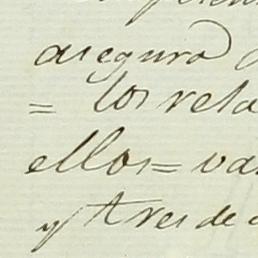 asegura
= los rela
ellos = va
y tres de